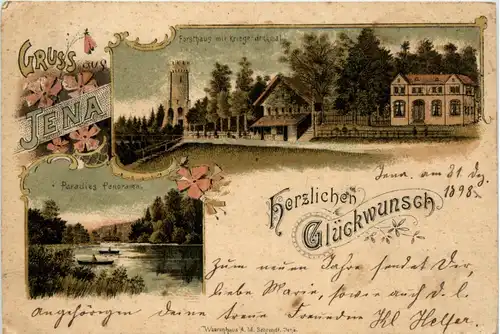 Gruss aus
JENA
Forsthaus mit Kriegerdenkmal.
Paradies Panorama.
Jena, am 31. Dez.
1898.
Herzlichen
Glückwunsch
Zum neuen Jahre sendet Dir,
liebe Marie, sowie auch d. l.
Angehörigen deine treue Freundin Kl. Helfer.
Waarenhaus A. W. Behrendt, Jena.